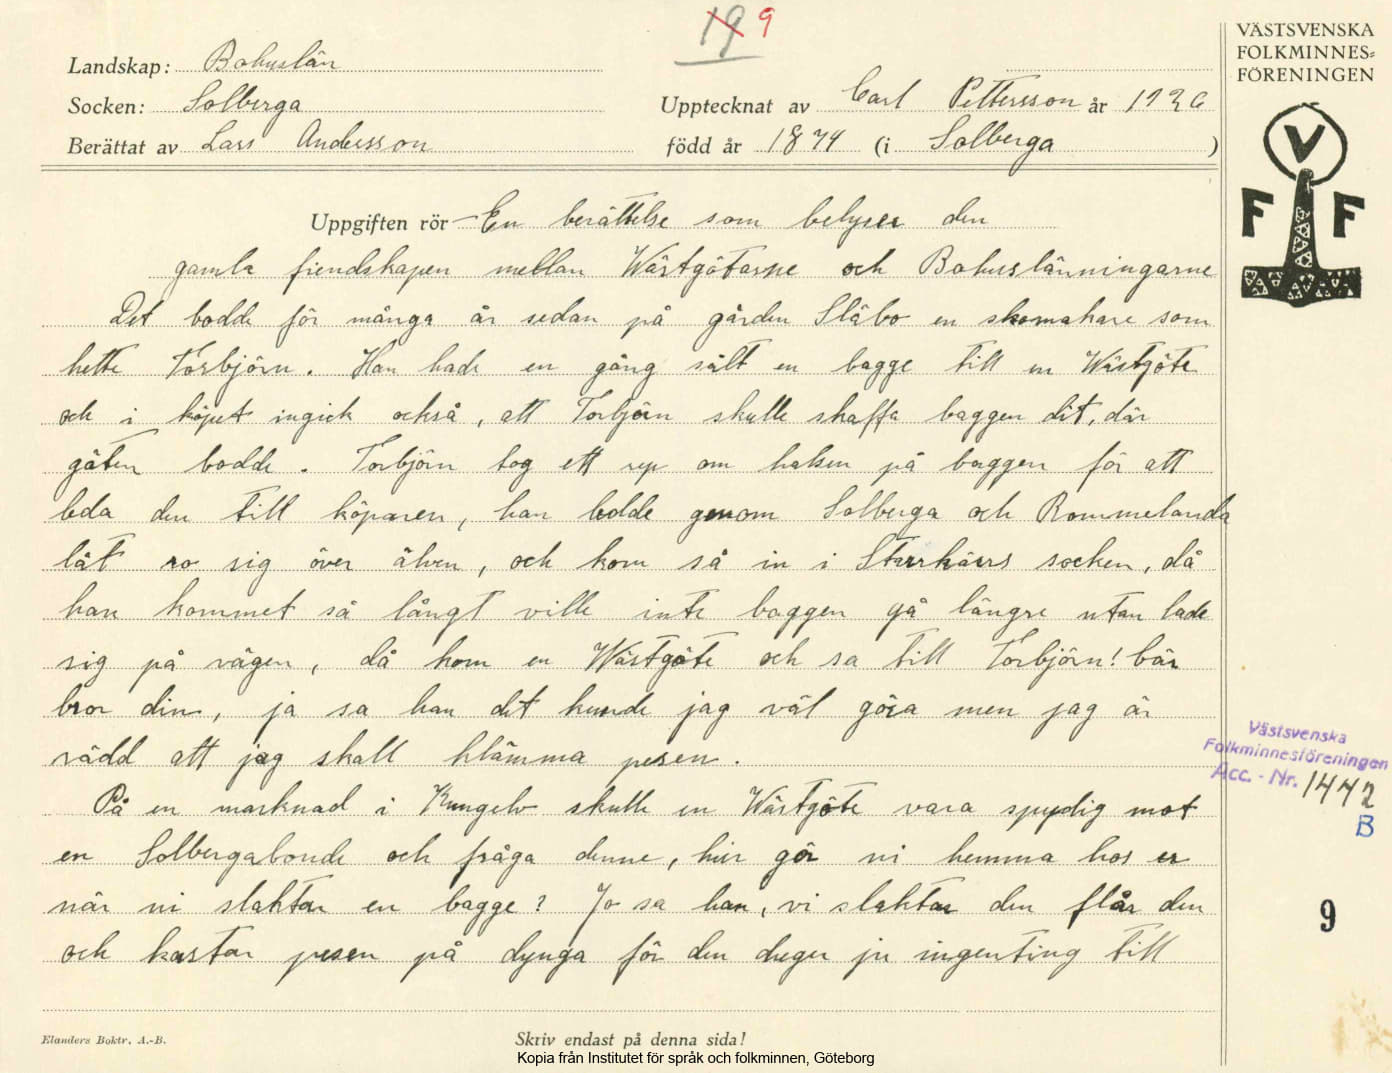 19 9
VÄSTSVENSKA
FOLKMINNES=
FÖRENINGEN
Landskap: Bohuslän
Socken: Solberga
Upptecknat av Carl Pettersson år 1926
Berättat av Lars Andersson
född år 1874 (i Solberga)
Uppgiften rör En berättelse som belyser den
gamla fiendskapen mellan Wästgötarne och Bohuslänningarne
Det bodde för många år sedan på gården Släbo en skomakare som
hette Torbjörn. Han hade en gång sålt en bagge till en Wästgöte
och i köpet ingick också, att Torbjörn skulle skaffa baggen dit, där
göten bodde. Torbjörn tog ett rep om halsen på baggen för att
leda den till köparen, han ledde genom Solberga och Rommelanda
låt ro sig över älven, och kom så in i Starrkärrs socken, då
han kommet så långt ville inte baggen gå längre utan lade
sig på vägen, då kom en Wästgöte och sa till Torbjörn! bär
bror din, ja sa han det kunde jag väl göra men jag är
rädd att jag skall klämma pesen.
På en marknad i Kungelv skulle en Wästgöte vara spydig mot
en Solbergabonde och fråga denne, hur gör ni hemma hos er
när ni slaktar en bagge? Jo sa han, vi slaktar den flår den
och kastar pesen på dynga för den duger ju ingenting till
V
F F
Västsvenska
Folkminnesföreningen
Acc. - Nr. 1442
B
9
Elanders Boktr. A.-B.
Skriv endast på denna sida!
Kopia från Institutet för språk och folkminnen, Göteborg